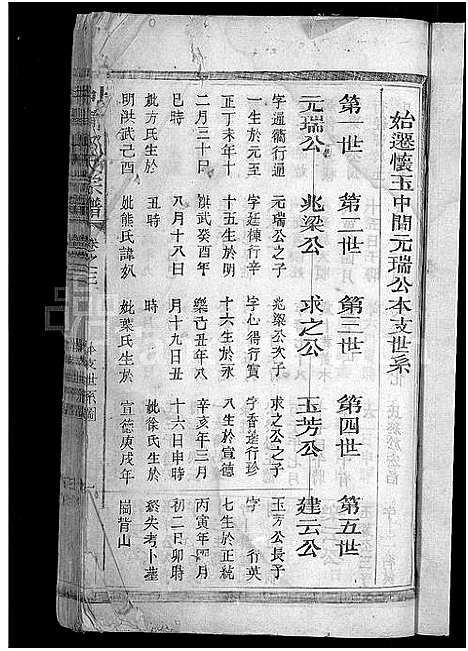 始遷懷玉中閬元瑞公本支世系
第一世
第二世
第三世
第四世
第五世
元瑞公
兆梁公
求之公
玉芳公
建云公
字通衢行通
一生於元至
正丁未年十
二月三十日
巳時
妣方氏生於
明洪武己酉
元瑞公之子
字廷棟行辛
十五生於明
洪武癸酉年
八月十八日
丑時
妣熊氏諱奴
兆梁公次子
字心得行寳
十六生於永
樂己丑年八
月十九日丑
時
妣葉氏生於
求之公之子
字香逵行珍
八生於宣德
辛亥年三月
十六日申時
妣徐氏生於
宣德庚戌年
玉芳公長子
字 行英
七生於正統
丙寅年 月
初二日卯時
歿失考卜墓
崗背山
宗譜
卷之三
本支世系圖